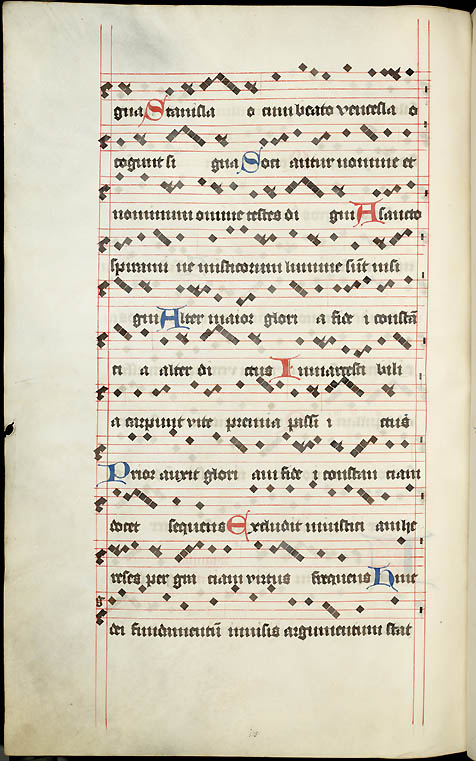 gna Stanisla o cum beato vencesla o
cogunt si gna Soci antur nomine et
nominum omine testes di gni A sancto
spirami ne misticorum lumine sūt insi
gni Alter maior glori a fide i constā
ti a alter di ctus In marcesci bili
a carpunt vite premia passi i ctus
Prior auxit glori am fide i constan ciam
docet sequens Excludit iustici anhe
reses per gra ciam virtus frequens Huic
dei fundamentū misis argumentum stat